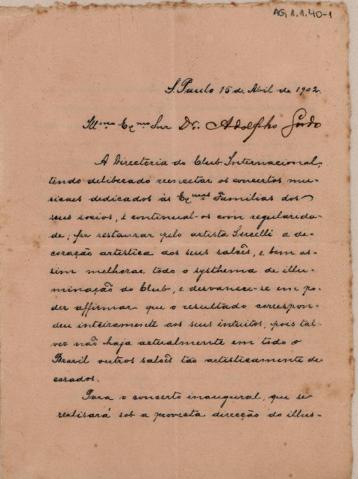 AG.1.1.40-1
S. Paulo 15 de Abril de 1902.
Illmo Exmo Snr Dr. Adolpho Gordo
A Directoria do Club Internacional,
tendo deliberado encetar os concertos mu-
sicaes dedicados às Exmas Familias dos
seus socios, e continual-os com regularida-
de, fez restaurar pelo artista a de-
coração artistica dos seus salões, e bem as-
sim melhorar todo o systhema de illu-
minação do Club, e desvanece-se em po-
der affirmar que o resultado correspon-
deu inteiramente aos seus intuitos, pois tal-
vez não haja actualmente em todo o
Brazil outros salões tão artisticamente de-
corados.
Para o concerto inaugural, que se
realisará sob a provecta direcção do illus-